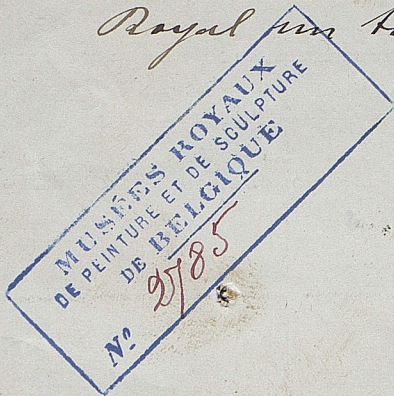 Royal un
MUSÉES ROYAUX
DE PEINTURE ET DE SCULPTURE
DE BELGIQUE
Nº